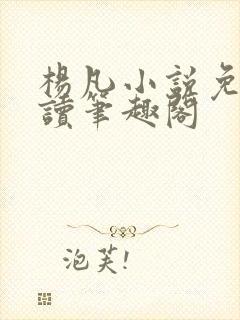 楊凡小說免
讀筆趣閣
泡芙!